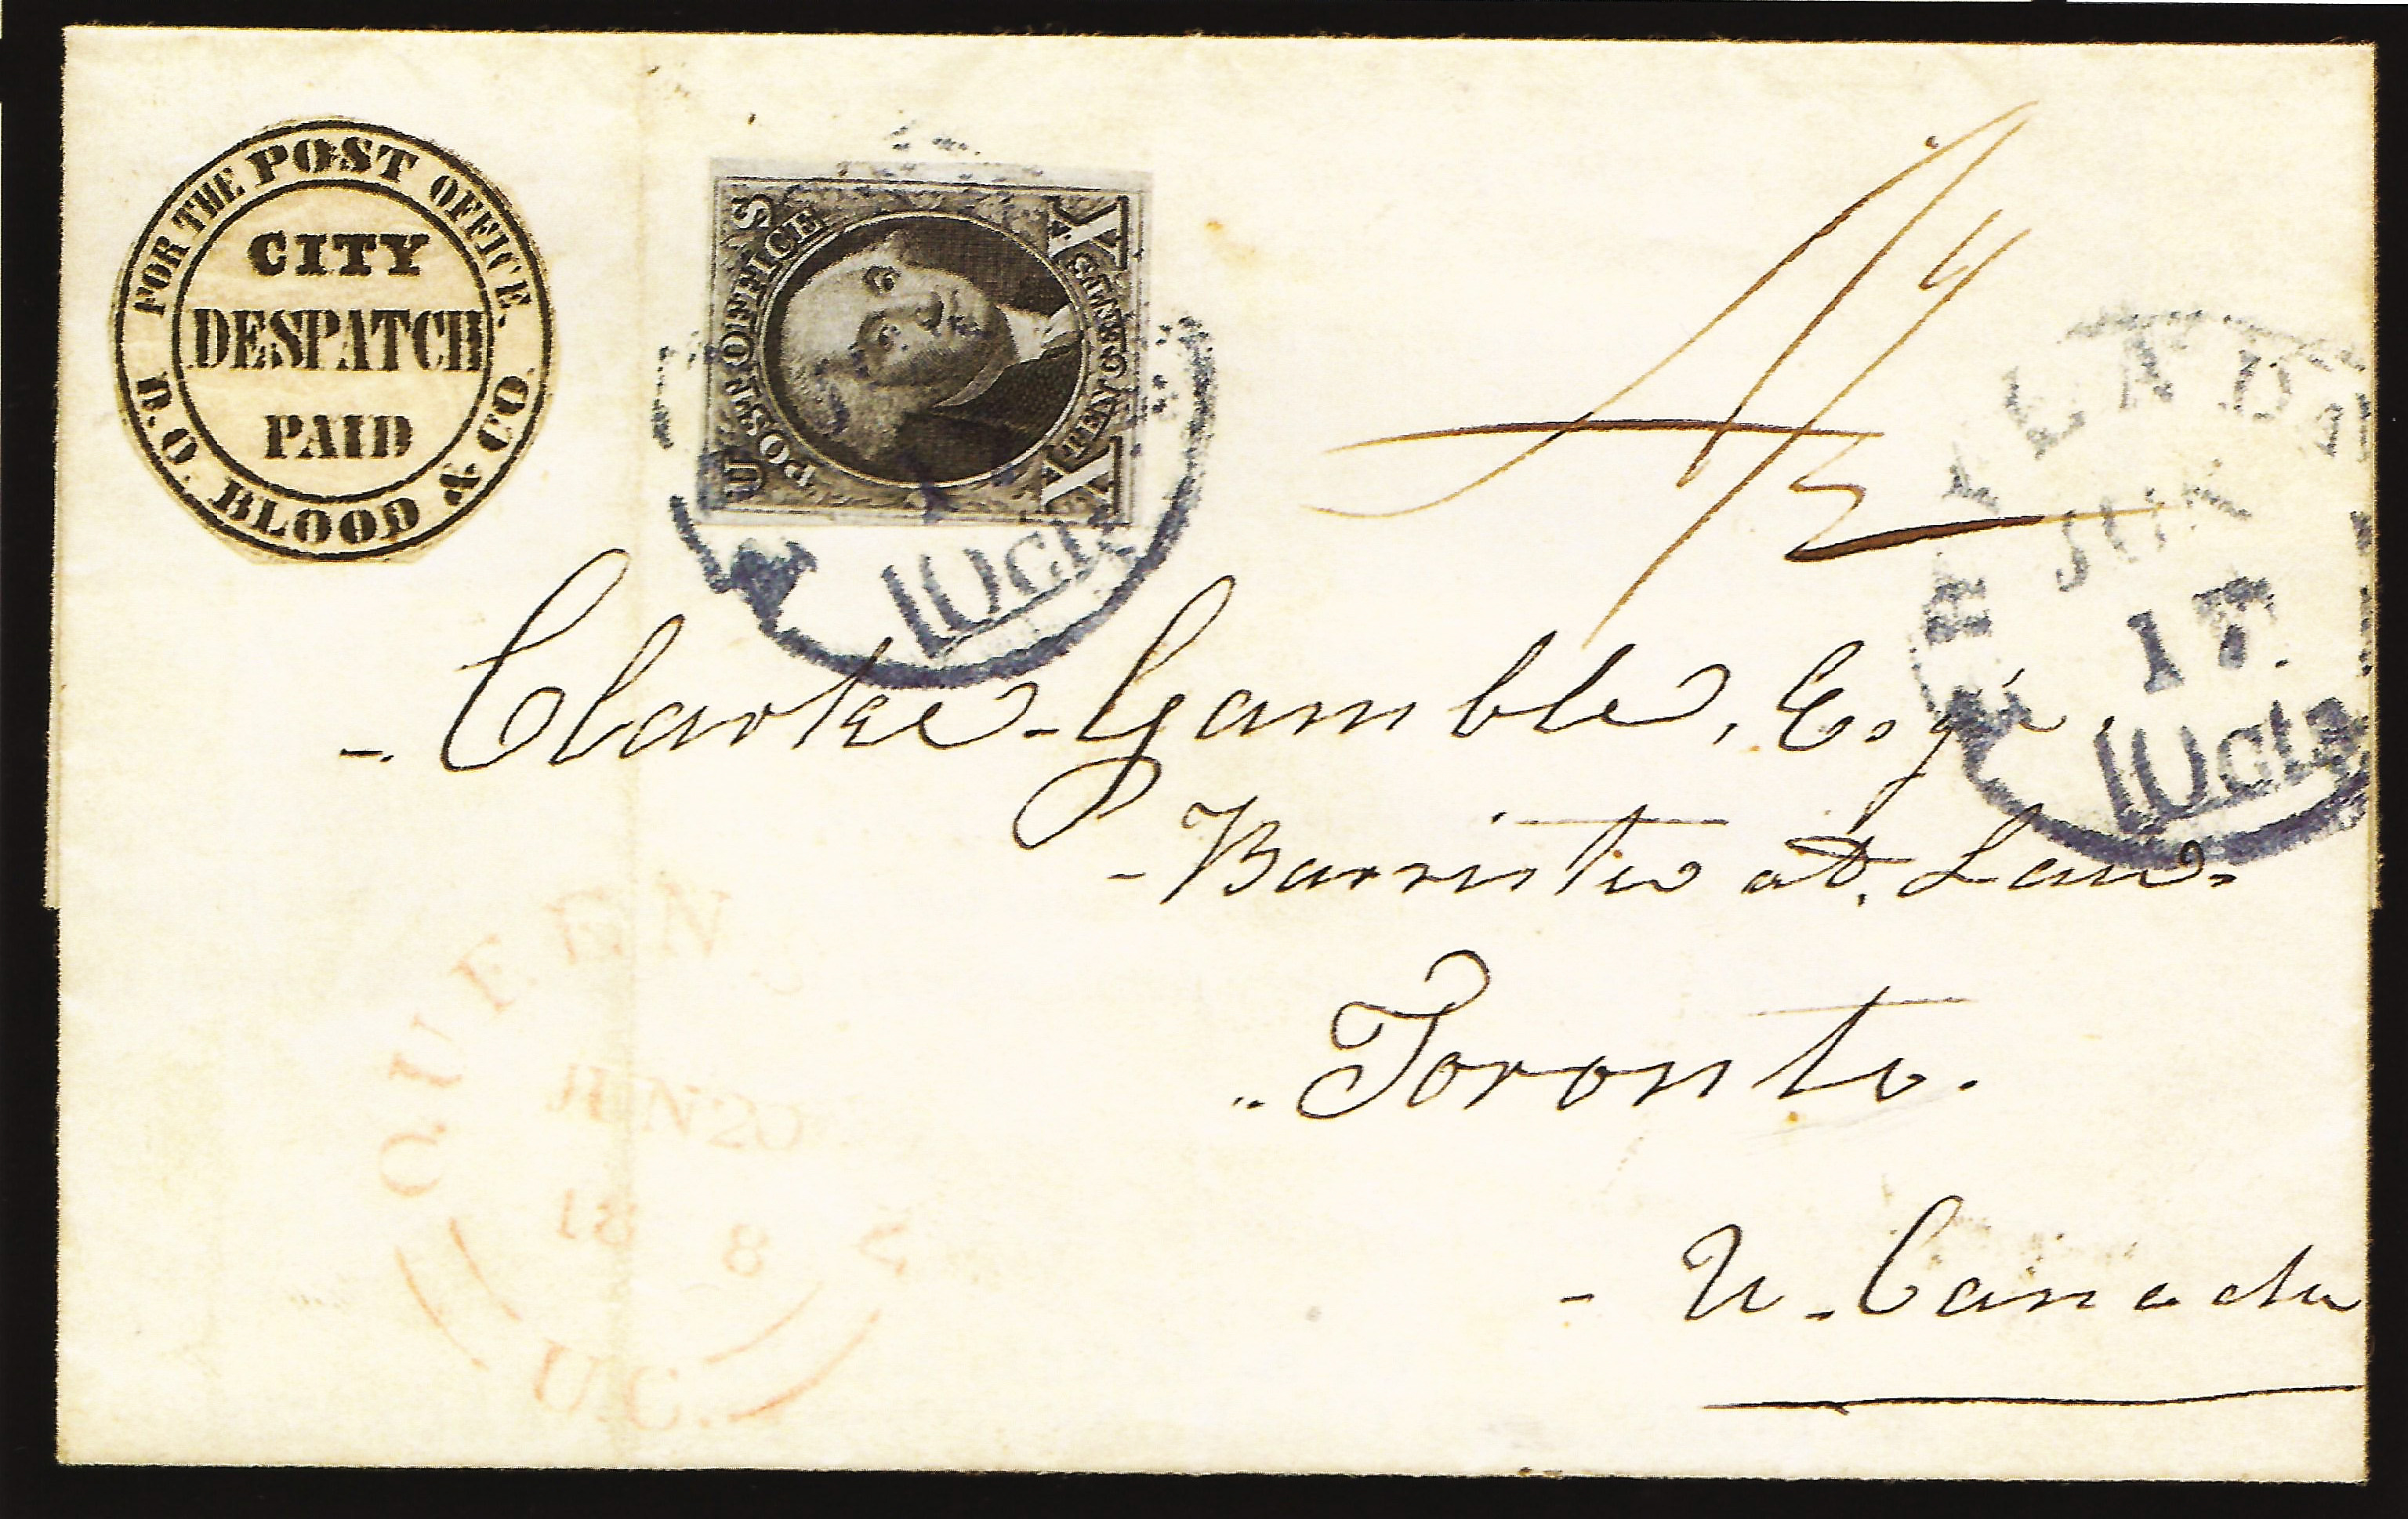 FOR THE POST OFFICE.
CITY
DESPATCH
PAID
D.O. BLOOD & CO.
U S
POST OFFICE
X TEN CENTS X
10cts
JUN
17
10cts
Clarke Gamble, Esqr.
Barrister at Law.
Toronto.
U. Canada
QUEEN
JUN 20
18 8
U.C.